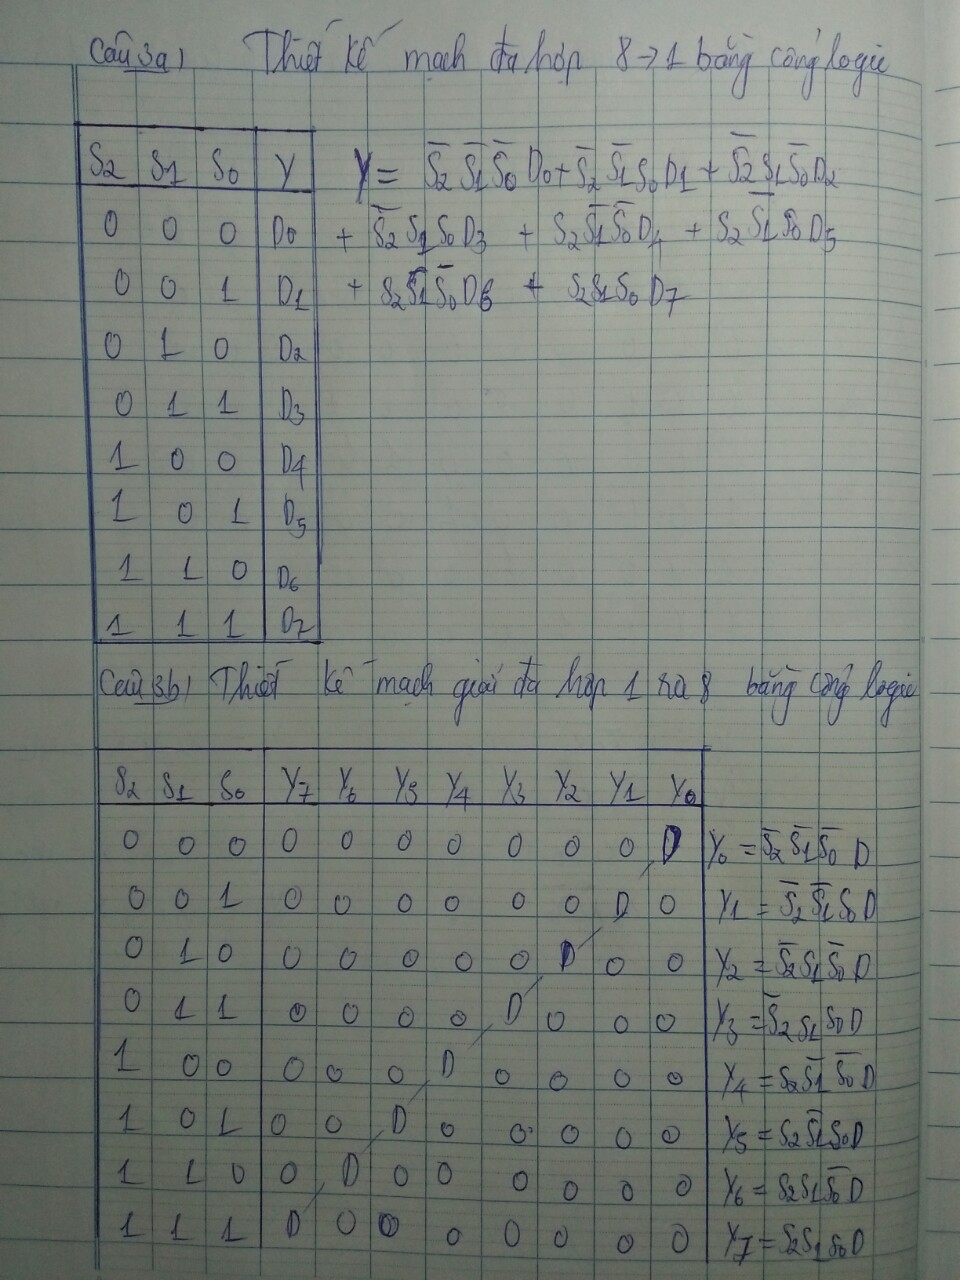 Câu 3a) Thiết kế mạch đa hợp 8→1 bằng cổng logic
S2 S1 S0 Y
0 0 0 D0
0 0 1 D1
0 1 0 D2
0 1 1 D3
1 0 0 D4
1 0 1 D5
1 1 0 D6
1 1 1 D7
Y = S̅2 S̅1 S̅0 D0 + S̅2 S̅1 S0 D1 + S̅2 S1 S̅0 D2
+ S̅2 S1 S0 D3 + S2 S̅1 S̅0 D4 + S2 S̅1 S0 D5
+ S2 S1 S̅0 D6 + S2 S1 S0 D7
Câu 3b) Thiết kế mạch giải đa hợp 1 ra 8 bằng cổng logic
S2 S1 S0 Y7 Y6 Y5 Y4 Y3 Y2 Y1 Y0
0 0 0 0 0 0 0 0 0 0 D Y0 = S̅2 S̅1 S̅0 D
0 0 1 0 0 0 0 0 0 D 0 Y1 = S̅2 S̅1 S0 D
0 1 0 0 0 0 0 0 D 0 0 Y2 = S̅2 S1 S̅0 D
0 1 1 0 0 0 0 D 0 0 0 Y3 = S̅2 S1 S0 D
1 0 0 0 0 0 D 0 0 0 0 Y4 = S2 S̅1 S̅0 D
1 0 1 0 0 D 0 0 0 0 0 Y5 = S2 S̅1 S0 D
1 1 0 0 D 0 0 0 0 0 0 Y6 = S2 S1 S̅0 D
1 1 1 D 0 0 0 0 0 0 0 Y7 = S2 S1 S0 D